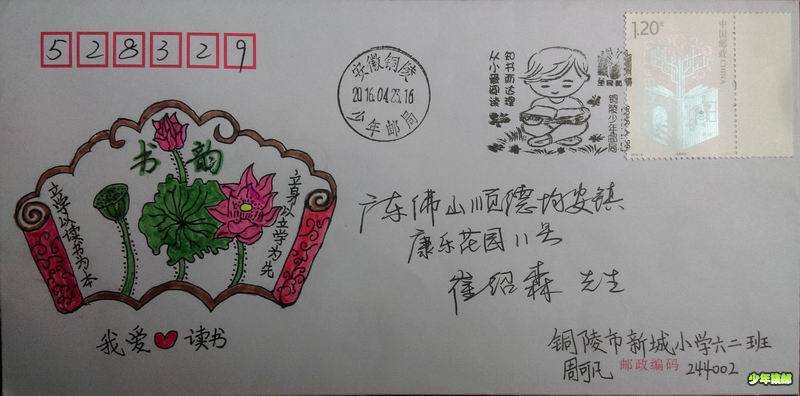 528329
安徽铜陵
2016.04.23.16
少年邮局
知书而达理
从小爱阅读
铜陵少年邮局
1.20元
中国邮政 CHINA
书韵
立身以立学为先
立学以读书为本
我爱❤读书
广东佛山顺德均安镇
康乐花园11号
崔绍森 先生
铜陵市新城小学六二班
周可凡 邮政编码 244002
少年集邮